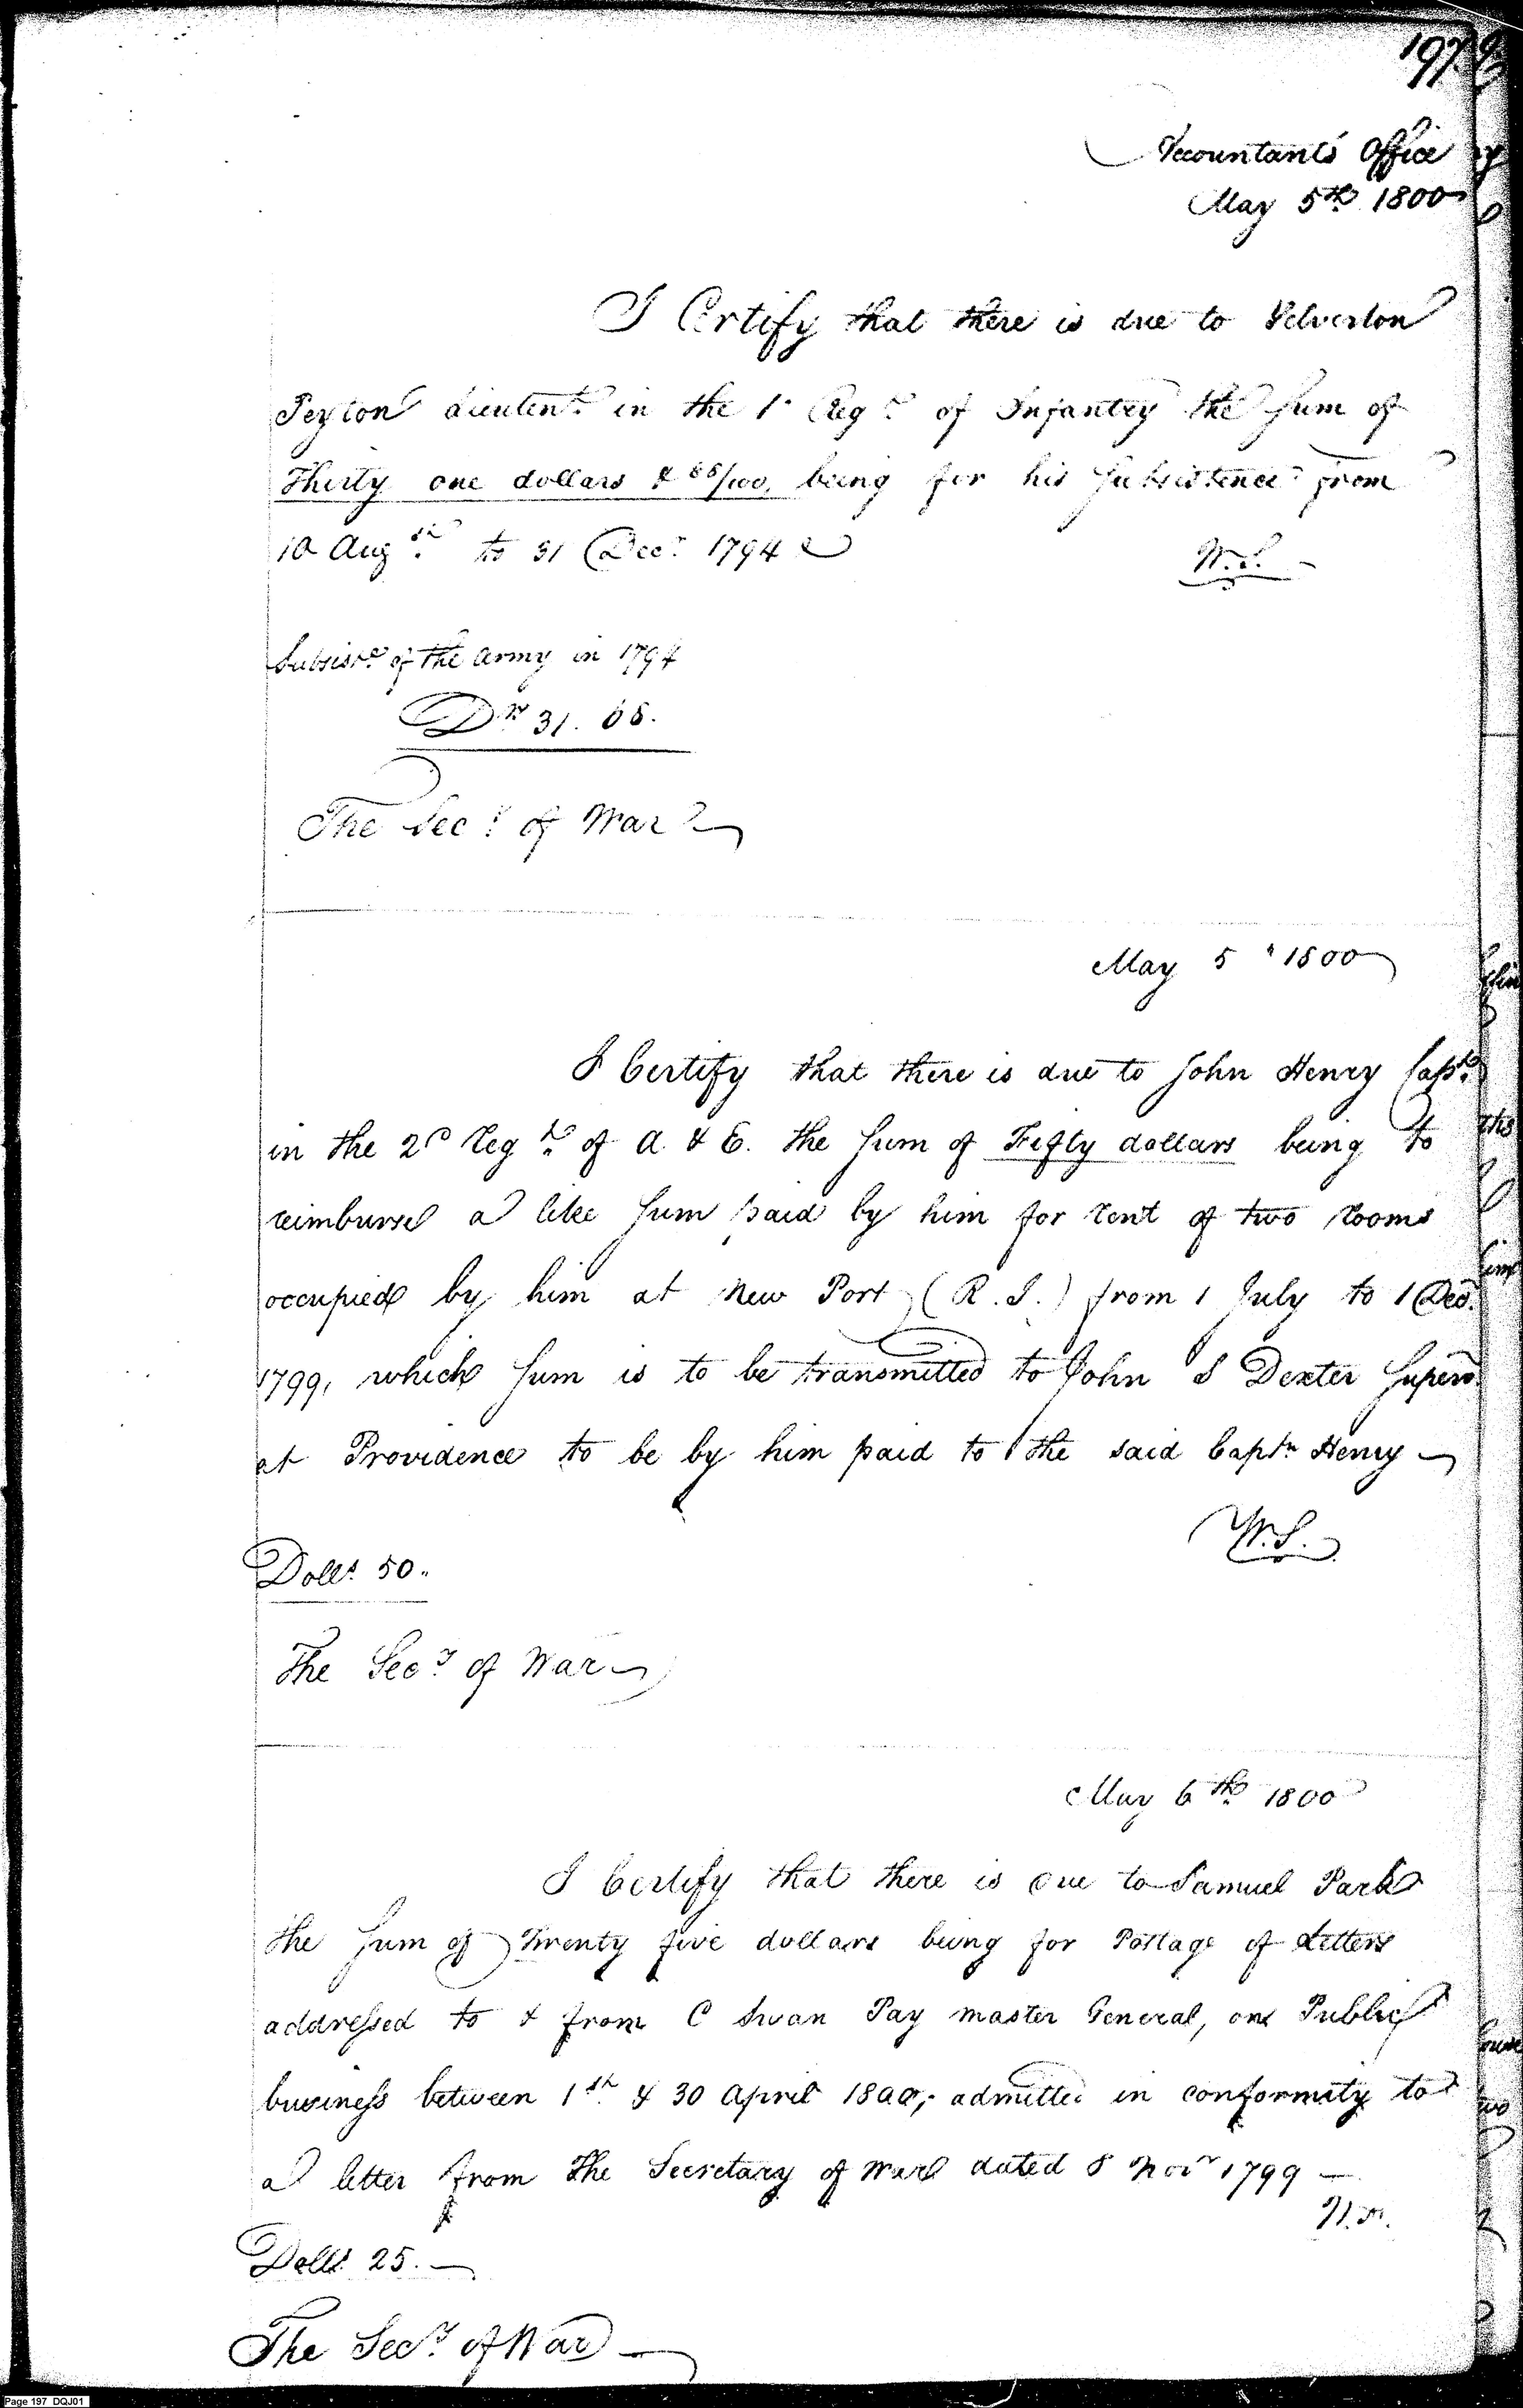 197
Accountants Office
May 5th 1800
I Certify that there is due to Yelverton
Peyton Lieutent. in the 1st Regt. of Infantry the Sum of
Thirty one dollars & 68/100, being for his Subsistence from
10 Augst. to 31 Decr. 1794
W.S.
Subsistce. of the army in 1794
Drs 31. 68.
The Secy. of War
May 5th 1800
I Certify that there is due to John Henry Captn.
in the 2d Regt. of A. & E. the Sum of Fifty dollars being to
reimburse a like Sum paid by him for rent of two rooms
occupied by him at New Port (R.I.) from 1 July to 1 Decr.
1799, which Sum is to be transmitted to John S Dexter Superv.
at Providence to be by him paid to the said Captn Henry
W.S.
Dolls. 50.
The Secy. of War
May 6th. 1800
I Certify that there is due to Samuel Park
the Sum of Twenty five dollars being for Postage of Letters
addressed to & from C Swan Pay master General, on Public
business between 1st. & 30 April 1800; admitted in conformity to
a letter from the Secretary of War dated 8 Novr 1799
Dolls. 25.
The Secy. of War
Page 197 DQJ01